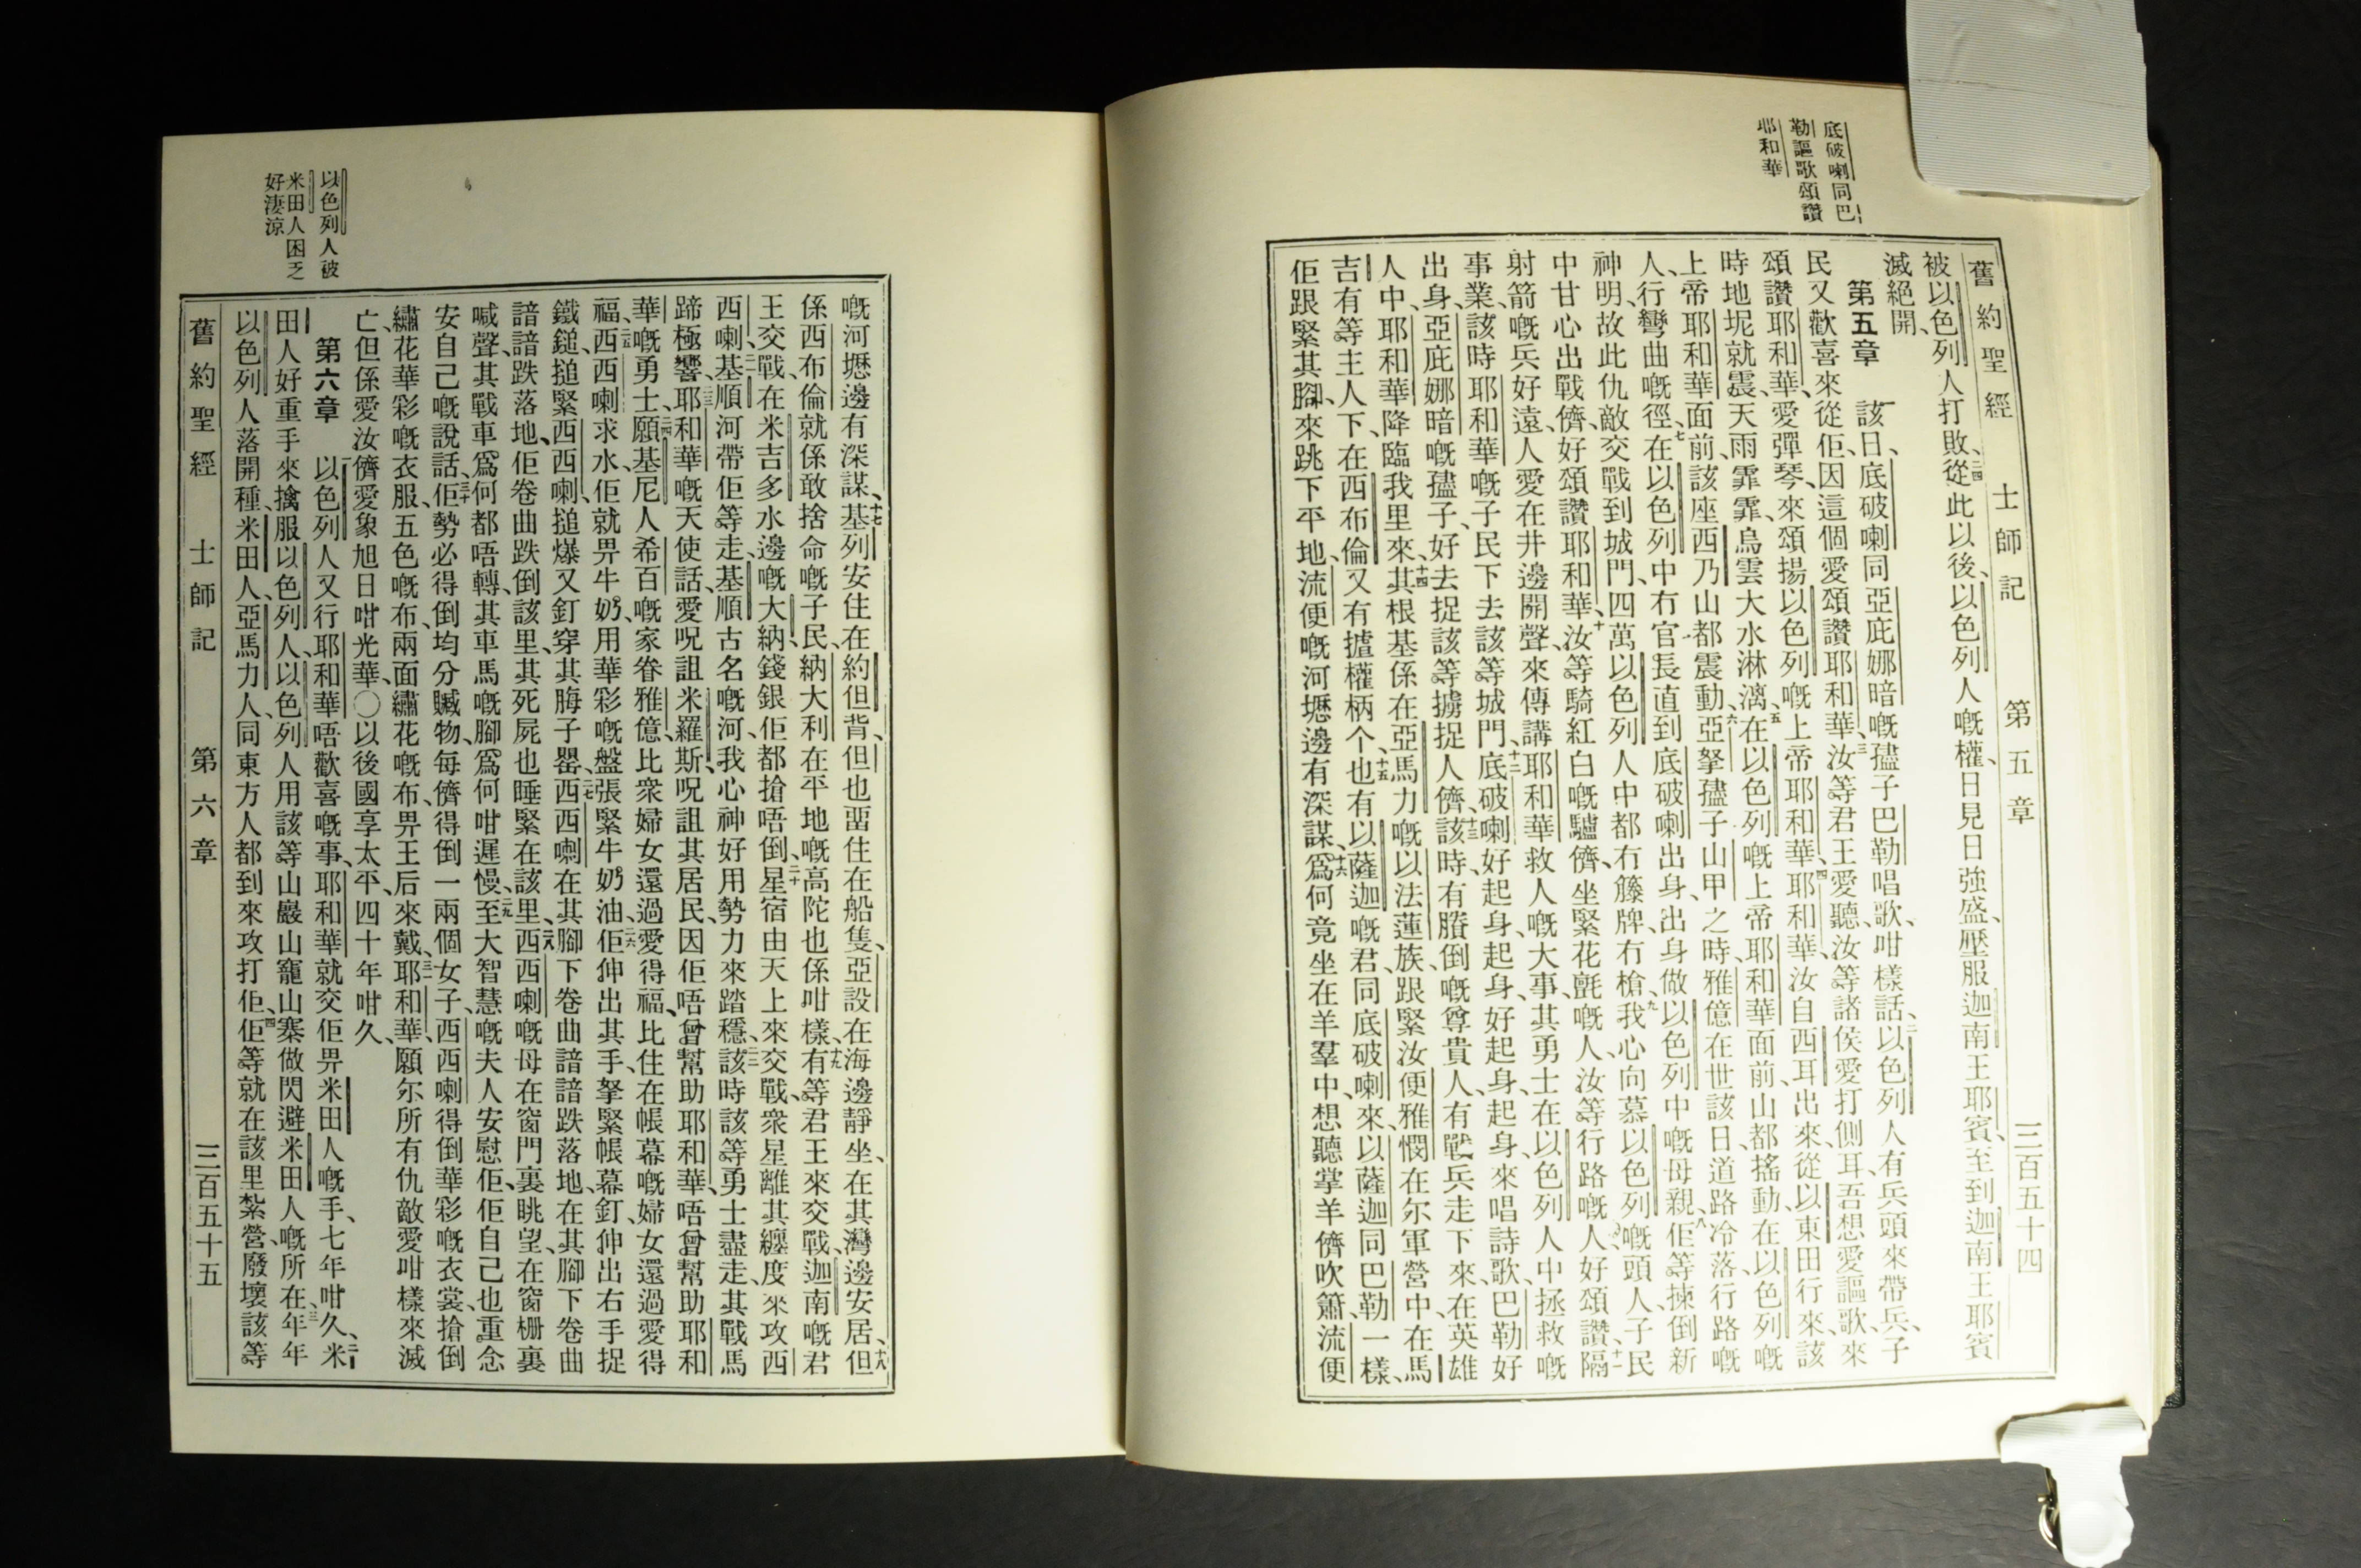 底破喇同巴
勒謳歌頌讚
耶和華
舊約聖經 士師記 第五章 三百五十四
被以色列人打敗、二四從此以後、以色列人嘅權、日見日強盛、壓服迦南王耶賓、至到迦南王耶賓
滅絕開、
第五章 一該日、底破喇同亞庇娜暗嘅孻子巴勒唱歌、咁樣話、二以色列人有兵頭來帶兵、子
民又歡喜來從佢、因這個愛頌讚耶和華、三汝等君王愛聽、汝等諸侯愛打側耳、吾想愛謳歌、來
頌讚耶和華、愛彈琴、來頌揚以色列嘅上帝耶和華、四耶和華、汝自西耳出來、從以東田行來、該
時地坭就震、天雨霏霏、烏雲大水淋漓、五在以色列嘅上帝耶和華面前、山都搖動、在以色列嘅
上帝耶和華面前、該座西乃山都震動、六亞拏孻子山甲之時、雅億在世該日、道路冷落、行路嘅
人、行彎曲嘅徑、七在以色列中冇官長、直到底破喇出身、出身做以色列中嘅母親、八佢等揀倒新
神明、故此仇敵交戰到城門、四萬以色列人中都冇籐牌、冇槍、九我心向慕以色列嘅頭人、子民
中甘心出戰儕、好頌讚耶和華、十汝等騎紅白嘅驢儕、坐緊花氈嘅人、汝等行路嘅人、好頌讚、十一隔
射箭嘅兵好遠、人愛在井邊開聲、來傳講耶和華救人嘅大事、其勇士在以色列人中拯救嘅
事業、該時耶和華嘅子民下去該等城門、十二底破喇好起身、起身、好起身、起身、來唱詩歌、巴勒好
出身、亞庇娜暗嘅孻子、好去捉該等擄捉人儕、十三該時、有賸倒嘅尊貴人、有戰兵走下來、在英雄
人中、耶和華降臨我里來、十四其根基係在亞馬力嘅以法蓮族、跟緊汝便雅憫在尔軍營中、在馬
吉有等主人下、在西布倫又有㩀權柄个、十五也有以薩迦嘅君、同底破喇來、以薩迦同巴勒一樣、
佢跟緊其腳、來跳下平地、流便嘅河壢邊有深謀、十六爲何竟坐在羊羣中、想聽掌羊儕吹簫、流便
嘅河壢邊有深謀、十七基列安住在約但背、但也㽞住在船隻、亞設在海邊靜坐、在其灣邊安居、十八但
係西布倫、就係敢捨命嘅子民、納大利在平地嘅高陀也係咁樣、十九有等君王來交戰、迦南嘅君
王交戰、在米吉多水邊嘅大納、錢銀佢都搶唔倒、二十星宿由天上來交戰、衆星離其纏度來攻西
西喇、二一基順河帶佢等走、基順古名嘅河、我心神好用勢力來踏穩、二二該時該等勇士盡走、其戰馬
蹄極響、二三耶和華嘅天使話、愛呪詛米羅斯、呪詛其居民、因佢唔曾幫助耶和華、唔曾幫助耶和
華嘅勇士、二四願基尼人希百嘅家眷雅億、比衆婦女還過愛得福、比住在帳幕嘅婦女還過愛得
福、二五西西喇求水、佢就畀牛奶、用華彩嘅盤張緊牛奶油、二六佢伸出其手、拏緊帳幕釘、伸出右手捉
鐵鎚、搥緊西西喇、搥爆又釘穿其脢子罌、二七西西喇在其腳下卷曲諳諳跌落地、在其腳下卷曲
諳諳跌落地、佢卷曲跌倒該里、其死屍也睡緊在該里、二八西西喇嘅母在窗門裏眺望、在窗柵裏
喊聲、其戰車爲何都唔轉、其車馬嘅腳爲何咁遲慢、二九至大智慧嘅夫人安慰佢、佢自己也重念
安自己嘅說話、三十佢勢必得倒均分贓物、每儕得倒一兩個女子、西西喇得倒華彩嘅衣裳、搶倒
繡花華彩嘅衣服、五色嘅布、兩面繡花嘅布、畀王后來戴、三一耶和華、願尔所有仇敵愛咁樣來滅
亡、但係愛汝儕愛象旭日咁光華、〇以後國享太平、四十年咁久、
第六章 一以色列人又行耶和華唔歡喜嘅事、耶和華就交佢畀米田人嘅手、七年咁久、二米
田人好重手來擒服以色列人、以色列人用該等山巖山竉山寨做閃避米田人嘅所在、三年年
以色列人落開種、米田人、亞馬力人、同東方人都到來攻打佢、四佢等就在該里紮營、廢壞該等
舊約聖經 士師記 第六章 三百五十五
以色列人被
米田人困乏
好淒涼